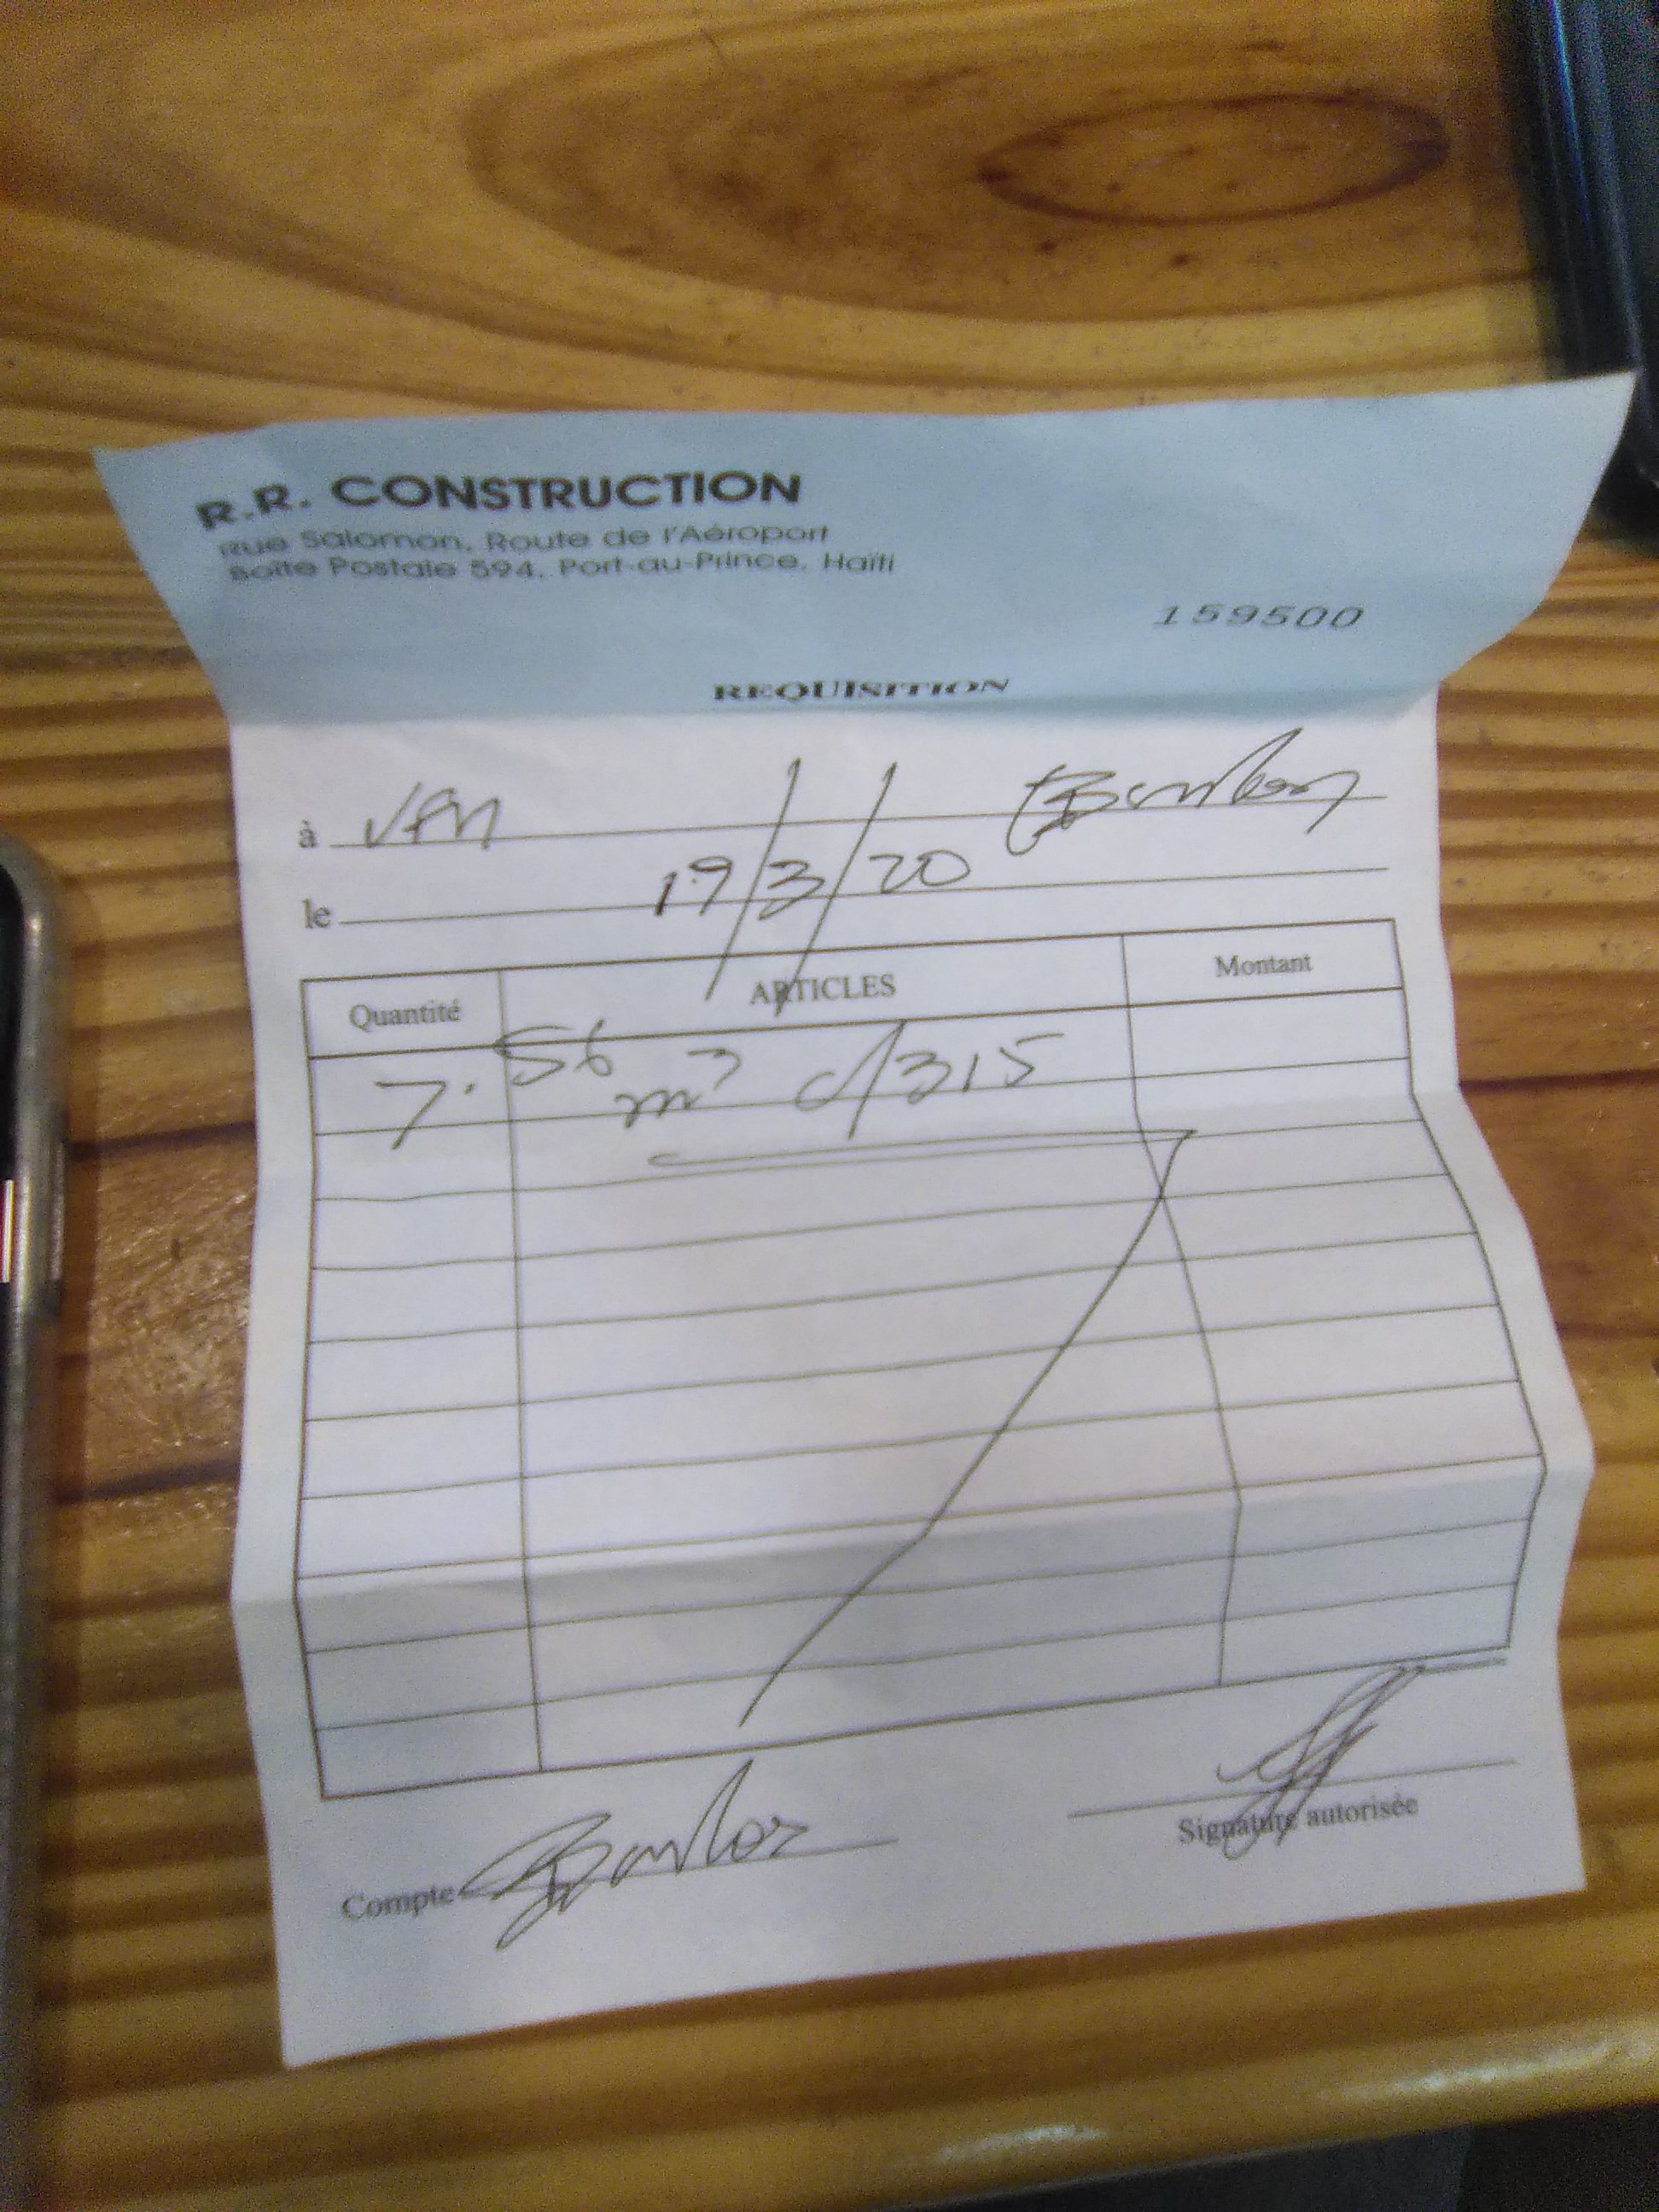 R.R. CONSTRUCTION
Rue Salomon, Route de l'Aéroport
Boîte Postale 594, Port-au-Prince, Haïti
159500
REQUISITION
à
le 19/3/20
Quantité ARTICLES Montant
7.56 m3 c/315
Compte
Signature autorisée